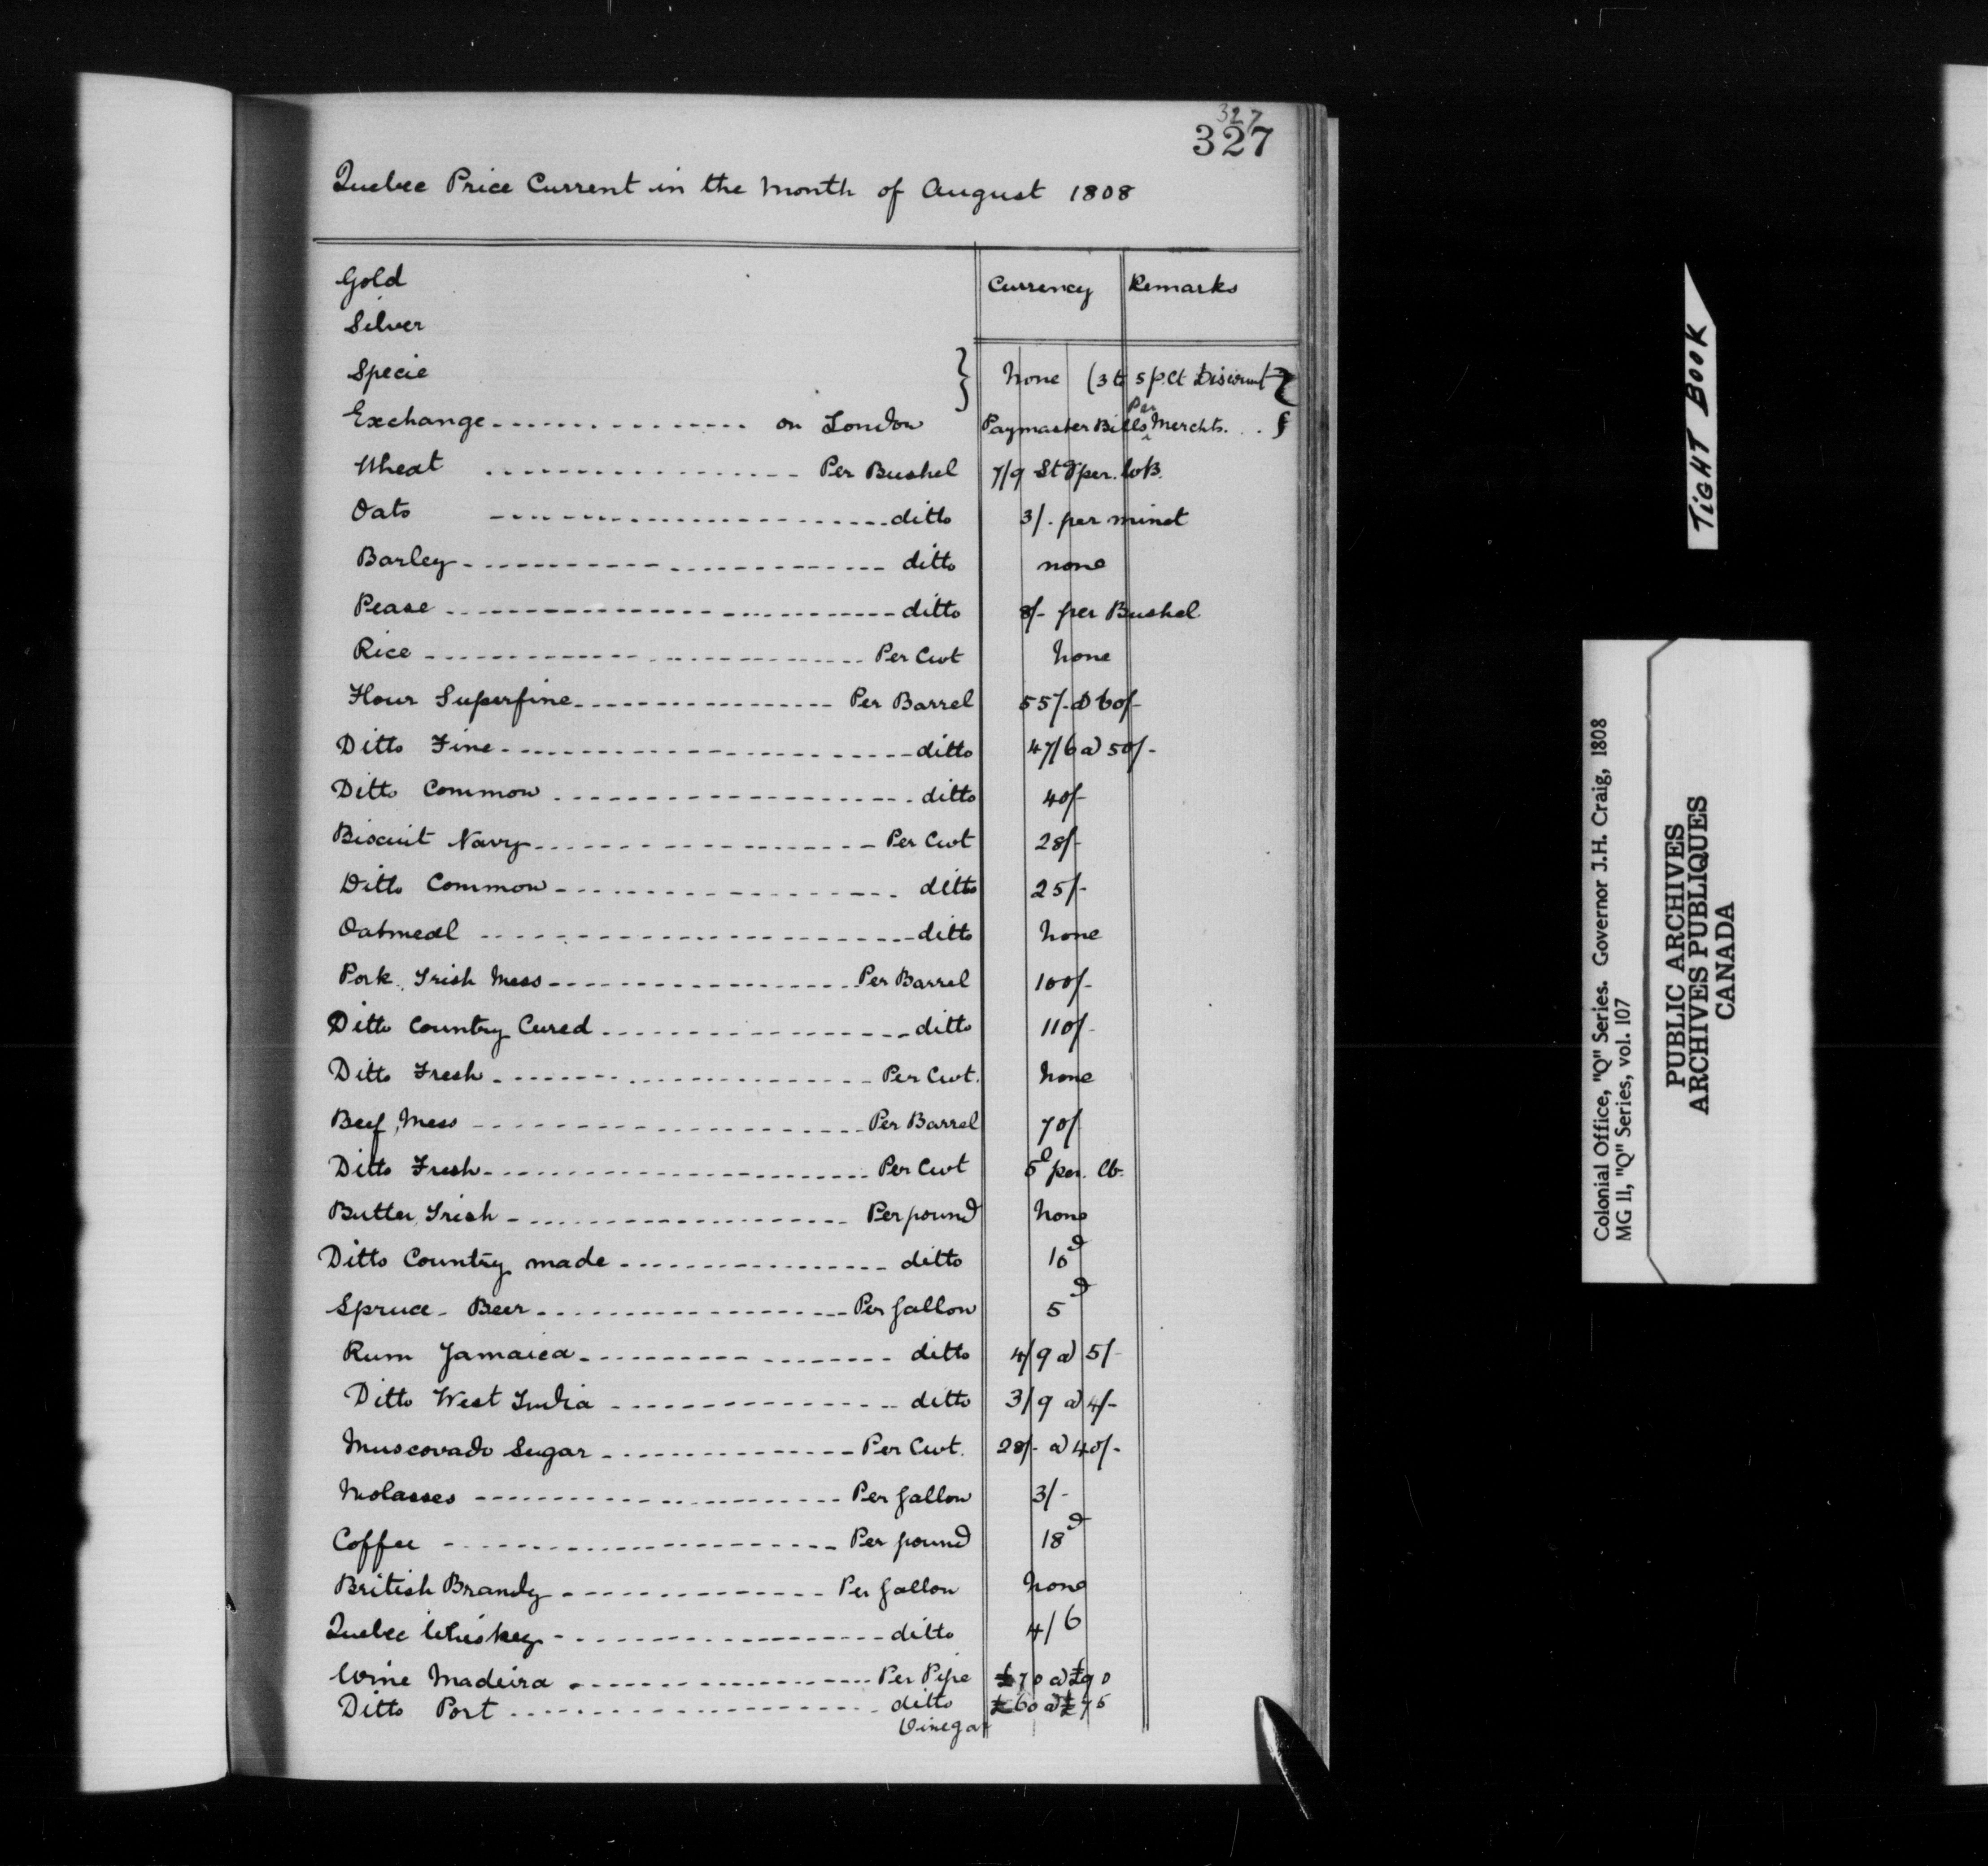 327
327
Quebec Price Current in the Month of August 1808
Currency Remarks
Gold
Silver
Specie } None (3 to 5 p.Ct Discount }
Exchange - - - on London Paymaster Bills Par Merchts. . . }
Wheat - - - Per Bushel 7/9 Stg per.
Oats - - - ditto 3/- per minot
Barley - - - ditto none
Pease - - - ditto 8/- per Bushel
Rice - - - Per Cwt None
Flour Superfine - - - Per Barrel 55/- a 60/-
Ditto Fine - - - ditto 47/6 a 50/-
Ditto Common - - - ditto 40/-
Biscuit Navy - - - Per Cwt 28/-
Ditto Common - - - ditto 25/-
Oatmeal - - - ditto None
Pork, Irish Mess - - - Per Barrel 100/-
Ditto Country Cured - - - ditto 110/-
Ditto Fresh - - - Per Cwt. None
Beef, Mess - - - Per Barrel 70/
Ditto Fresh - - - Per Cwt 5d per. lb.
Butter, Irish - - - Per pound None
Ditto Country made - - - ditto 10d
Spruce - Beer - - - Per Gallon 5d
Rum Jamaica - - - ditto 4/9 a 5/-
Ditto West India - - - ditto 3/9 a 4/-
Muscovado Sugar - - - Per Cwt. 28/- a 40/-
Molasses - - - Per Gallon 3/-
Coffee - - - Per pound 18d
British Brandy - - - Per Gallon None
Quebec Whiskey - - - ditto 4/6
Wine Madeira - - - Per Pipe £70 a £90
Ditto Port - - - ditto £60 a £75
Vinegar
TIGHT BOOK
Colonial Office, "Q" Series. Governor J.H. Craig, 1808
MG 11, "Q" Series, vol. 107
PUBLIC ARCHIVES
ARCHIVES PUBLIQUES
CANADA